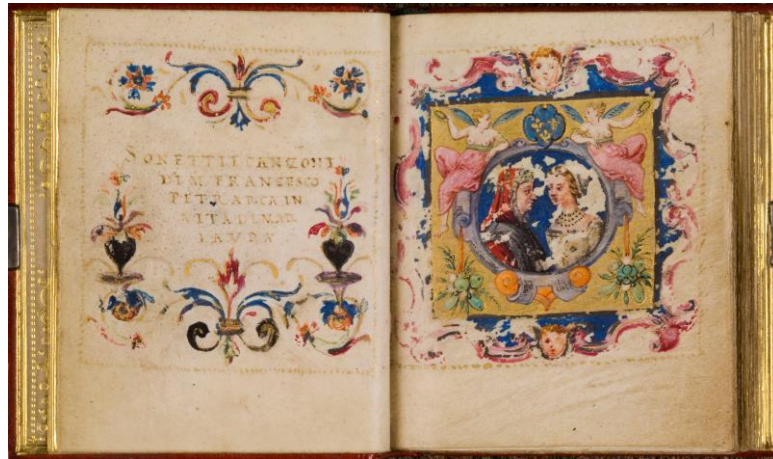 SONETTI E CANZONI
DI M. FRANCESCO
PETRARCA IN
VITA DI MAD.
LAVRA
1